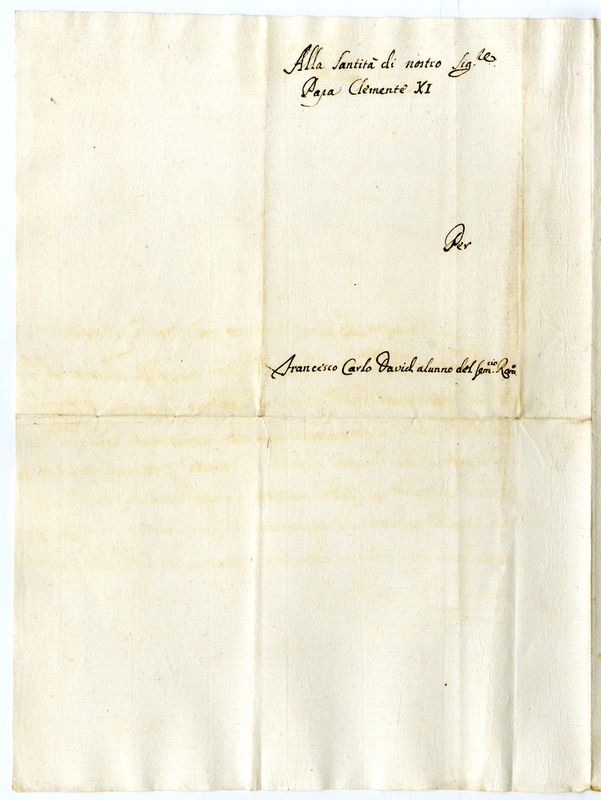 Alla Santità di nostro Sig.re
Papa Clemente XI
Per
Francesco Carlo David alunno del Sem.rio Rom.o